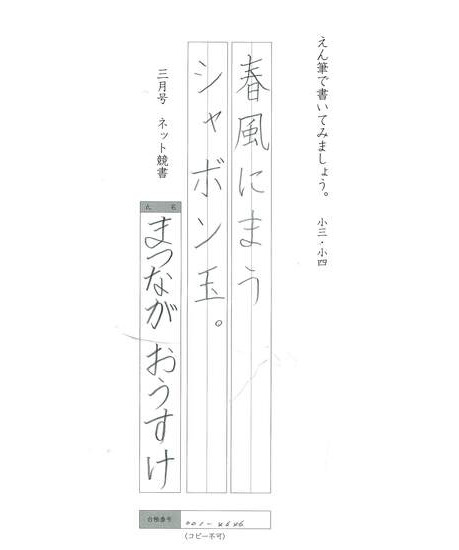 えん筆で書いてみましょう。 小三・小四
春風にまう
シャボン玉。
三月号 ネット競書
まつながおうすけ
合格番号
(コピー不可)